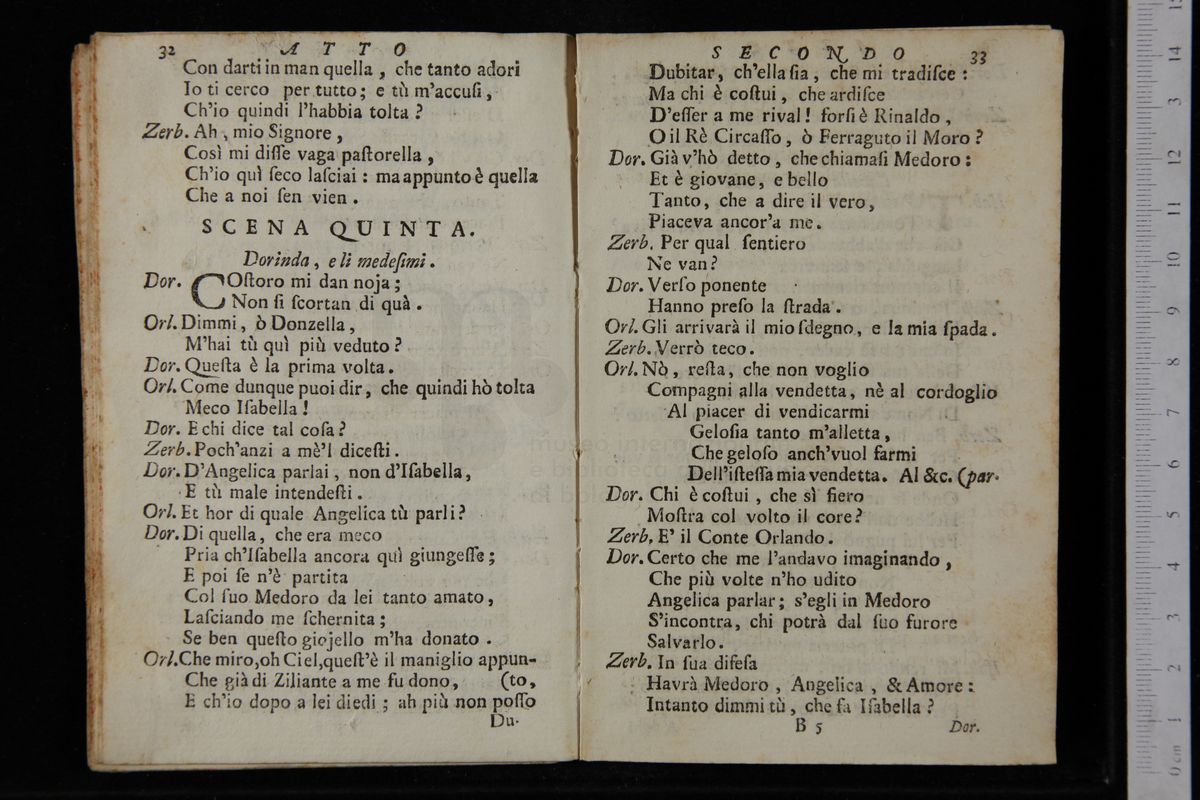 32 A T T O
Con darti in man quella , che tanto adori
Io ti cerco per tutto ; e tù m'accuſi ,
Ch'io quindi l'habbia tolta ?
Zerb. Ah , mio Signore ,
Così mi diſſe vaga paſtorella ,
Ch'io quì ſeco laſciai : ma appunto è quella
Che a noi ſen vien .
SCENA QUINTA.
Dorinda , e li medeſimi .
Dor. COſtoro mi dan noja ;
Non ſi ſcortan di quà .
Orl. Dimmi , ò Donzella ,
M'hai tù quì più veduto ?
Dor. Queſta è la prima volta .
Orl. Come dunque puoi dir , che quindi hò tolta
Meco Iſabella !
Dor. E chi dice tal coſa ?
Zerb. Poch'anzi a mè'l diceſti .
Dor. D'Angelica parlai , non d'Iſabella ,
E tù male intendeſti .
Orl. Et hor di quale Angelica tù parli ?
Dor. Di quella , che era meco
Pria ch'Iſabella ancora quì giungeſſe ;
E poi ſe n'è partita
Col ſuo Medoro da lei tanto amato ,
Laſciando me ſchernita ;
Se ben queſto giojello m'ha donato .
Orl. Che miro, oh Ciel, queſt'è il maniglio appun-
Che già di Ziliante a me fu dono , (to,
E ch'io dopo a lei diedi ; ah più non poſſo
Du-
S E C O N D O 33
Dubitar , ch'ella ſia , che mi tradiſce :
Ma chi è coſtui , che ardiſce
D'eſſer a me rival ! forſi è Rinaldo ,
O il Rè Circaſſo , ò Ferraguto il Moro ?
Dor. Già v'hò detto , che chiamaſi Medoro :
Et è giovane , e bello
Tanto , che a dire il vero ,
Piaceva ancor'a me .
Zerb. Per qual ſentiero
Ne van ?
Dor. Verſo ponente
Hanno preſo la ſtrada .
Orl. Gli arrivarà il mio ſdegno , e la mia ſpada .
Zerb. Verrò teco .
Orl. Nò , reſta , che non voglio
Compagni alla vendetta , nè al cordoglio
Al piacer di vendicarmi
Geloſia tanto m'alletta ,
Che geloſo anch'vuol farmi
Dell'iſteſſa mia vendetta . Al &c. (par.
Dor. Chi è coſtui , che sì fiero
Moſtra col volto il core ?
Zerb. E' il Conte Orlando .
Dor. Certo che me l'andavo imaginando ,
Che più volte n'ho udito
Angelica parlar ; s'egli in Medoro
S'incontra , chi potrà dal ſuo furore
Salvarlo .
Zerb. In ſua difeſa
Havrà Medoro , Angelica , & Amore :
Intanto dimmi tù , che fa Iſabella ?
B 5 Dor.